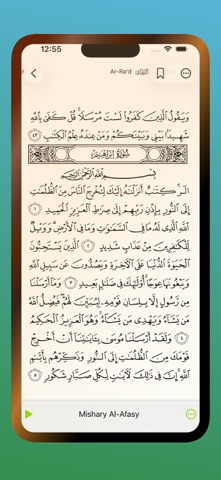 12:55
Ar-Ra'd
وَيَقُولُ ٱلَّذِينَ كَفَرُوا۟ لَسْتَ مُرْسَلًا ۚ قُلْ كَفَىٰ بِٱللَّهِ
شَهِيدًۢا بَيْنِى وَبَيْنَكُمْ وَمَنْ عِندَهُۥ عِلْمُ ٱلْكِتَٰبِ ٤٣
سُورَةُ إِبْرَاهِيمَ
بِسْمِ ٱللَّهِ ٱلرَّحْمَٰنِ ٱلرَّحِيمِ
الٓر ۚ كِتَٰبٌ أَنزَلْنَٰهُ إِلَيْكَ لِتُخْرِجَ ٱلنَّاسَ مِنَ ٱلظُّلُمَٰتِ
إِلَى ٱلنُّورِ بِإِذْنِ رَبِّهِمْ إِلَىٰ صِرَٰطِ ٱلْعَزِيزِ ٱلْحَمِيدِ ١
ٱللَّهِ ٱلَّذِى لَهُۥ مَا فِى ٱلسَّمَٰوَٰتِ وَمَا فِى ٱلْأَرْضِ ۗ وَوَيْلٌ
لِّلْكَٰفِرِينَ مِنْ عَذَابٍ شَدِيدٍ ٢ ٱلَّذِينَ يَسْتَحِبُّونَ
ٱلْحَيَوٰةَ ٱلدُّنْيَا عَلَى ٱلْءَاخِرَةِ وَيَصُدُّونَ عَن سَبِيلِ ٱللَّهِ
وَيَبْغُونَهَا عِوَجًا ۚ أُو۟لَٰٓئِكَ فِى ضَلَٰلٍۭ بَعِيدٍ ٣ وَمَآ أَرْسَلْنَا
مِن رَّسُولٍ إِلَّا بِلِسَانِ قَوْمِهِۦ لِيُبَيِّنَ لَهُمْ ۖ فَيُضِلُّ ٱللَّهُ
مَن يَشَآءُ وَيَهْدِى مَن يَشَآءُ ۚ وَهُوَ ٱلْعَزِيزُ ٱلْحَكِيمُ
٤ وَلَقَدْ أَرْسَلْنَا مُوسَىٰ بِـَٔايَٰتِنَآ أَنْ أَخْرِجْ
قَوْمَكَ مِنَ ٱلظُّلُمَٰتِ إِلَى ٱلنُّورِ وَذَكِّرْهُم بِأَيَّىٰمِ
ٱللَّهِ ۚ إِنَّ فِى ذَٰلِكَ لَءَايَٰتٍ لِّكُلِّ صَبَّارٍ شَكُورٍ ٥
Mishary Al-Afasy